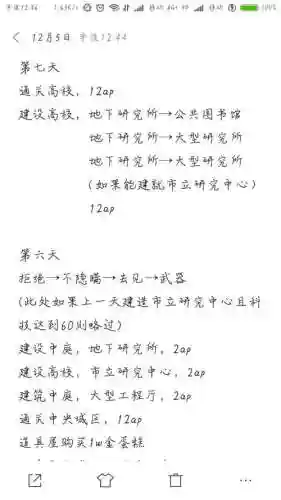 12月5日 午夜12:44
第七天
通关高校，12ap
建设高校，地下研究所→公共图书馆
地下研究所→大型研究所
地下研究所→大型研究所
（如果能建就市立研究中心）
12ap
第六天
拒绝→不隐瞒→去见→武器
(此处如果上一天建造市立研究中心且科
技达到60则略过)
建设中庭，地下研究所，2ap
建设高校，市立研究中心，2ap
建筑中庭，大型工程厅，2ap
通关中央城区，12ap
道具屋购买1w金蛋糕